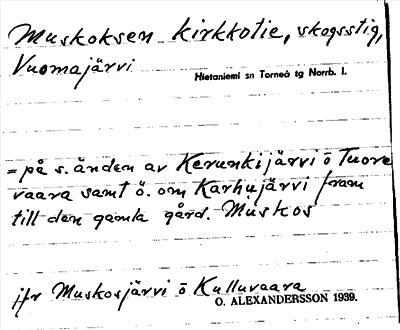 Muskoksen kirkkotie, skogsstig,
Vuomajärvi
Hietaniemi sn Torneå tg Norrb. l.
= på s. änden av Kerunkijärvi ö Tuore
vaara samt ö. om Karhujärvi fram
till den gamla gård. Muskos
jfr Muskosjärvi ö Kulluvaara
O. ALEXANDERSSON 1939.